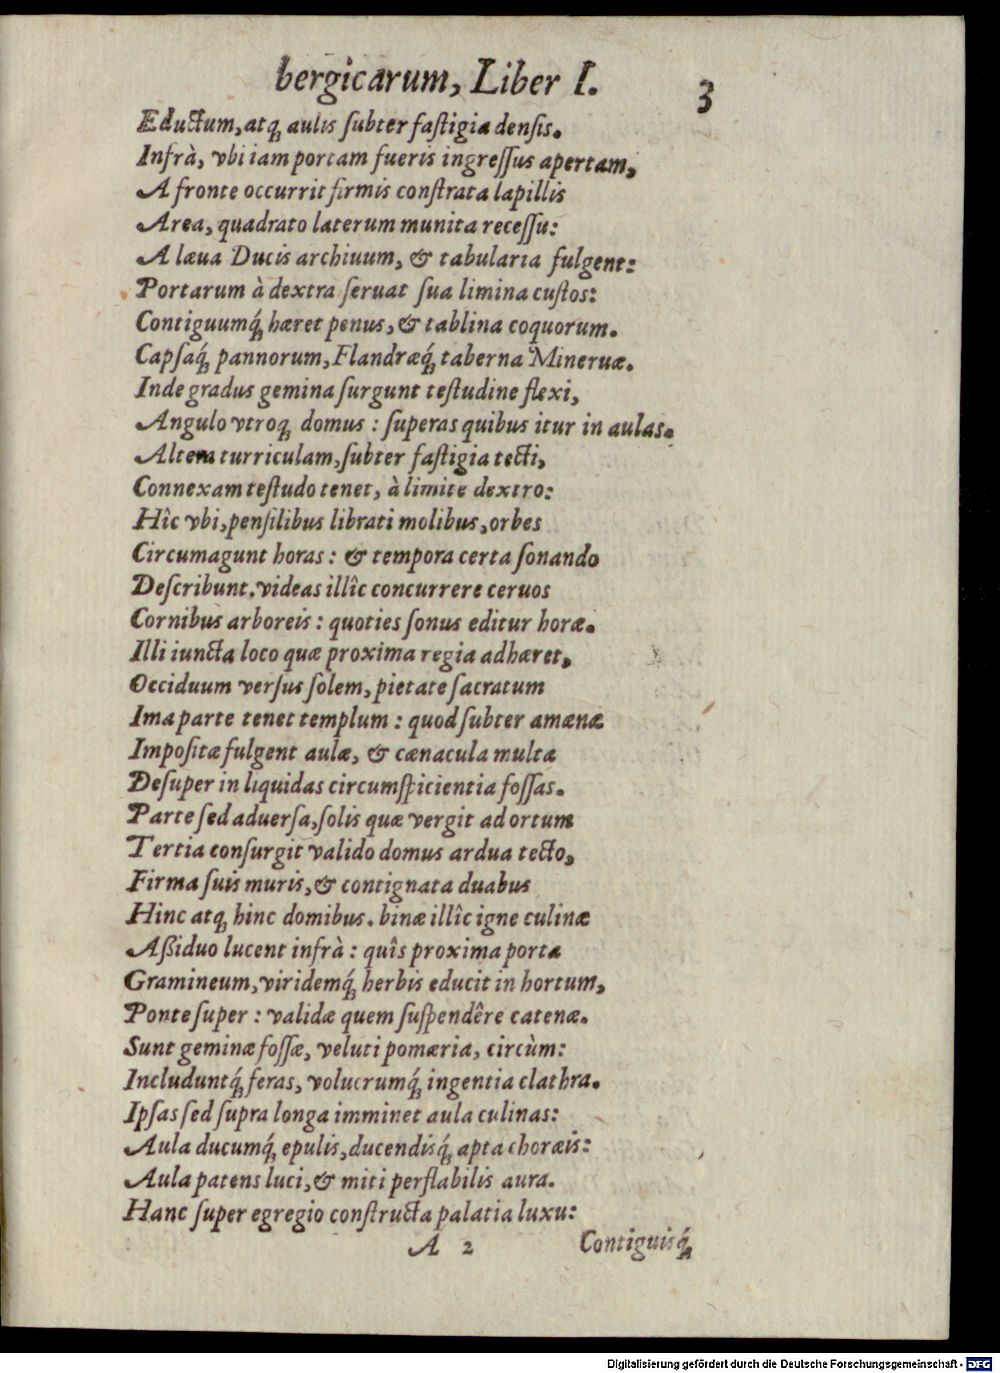 bergicarum, Liber I. 3
Eductum, atq́ aulis ſubter faſtigia denſis.
Infrà, vbi iam portam fueris ingreſſus apertam,
A fronte occurrit firmis conſtrata lapillis
Area, quadrato laterum munita receſſu:
A læua Ducis archiuum, & tabularia fulgent:
Portarum à dextra ſeruat ſua limina cuſtos:
Contiguumq́ hæret penus, & tablina coquorum.
Capſaq́ pannorum, Flandræq́ taberna Mineruæ.
Inde gradus gemina ſurgunt teſtudine flexi,
Angulo vtroq domus: ſuperas quibus itur in aulas.
Altera turriculam, ſubter faſtigia tecti,
Connexam teſtudo tenet, à limite dextro:
Hîc vbi, penſilibus librati molibus, orbes
Circumagunt horas: & tempora certa ſonando
Deſcribunt. videas illîc concurrere ceruos
Cornibus arboreis: quoties ſonus editur horæ.
Illi iuncta loco quæ proxima regia adhæret,
Occiduum verſus ſolem, pietate ſacratum
Ima parte tenet templum: quod ſubter amænæ
Impoſitæ fulgent aulæ, & cænacula multa
Deſuper in liquidas circumſpicientia foſſas.
Parte ſed aduerſa, ſolis quæ vergit ad ortum
Tertia conſurgit valido domus ardua tecto,
Firma ſuis muris, & contignata duabus
Hinc atq hinc domibus. binæ illîc igne culinæ
Aßiduo lucent infrà: quîs proxima porta
Gramineum, viridemq́ herbis educit in hortum,
Ponte ſuper: validæ quem ſuſpendêre catenæ.
Sunt geminæ foſſæ, veluti pomæria, circùm:
Includuntq́ feras, volucrumq́ ingentia clathra.
Ipſas ſed ſupra longa imminet aula culinas:
Aula ducumq́ epulis, ducendisq́ apta choræis:
Aula patens luci, & miti perflabilis aura.
Hanc ſuper egregio conſtructa palatia luxu:
A 2 Contiguisq́
Digitalisierung gefördert durch die Deutsche Forschungsgemeinschaft - DFG